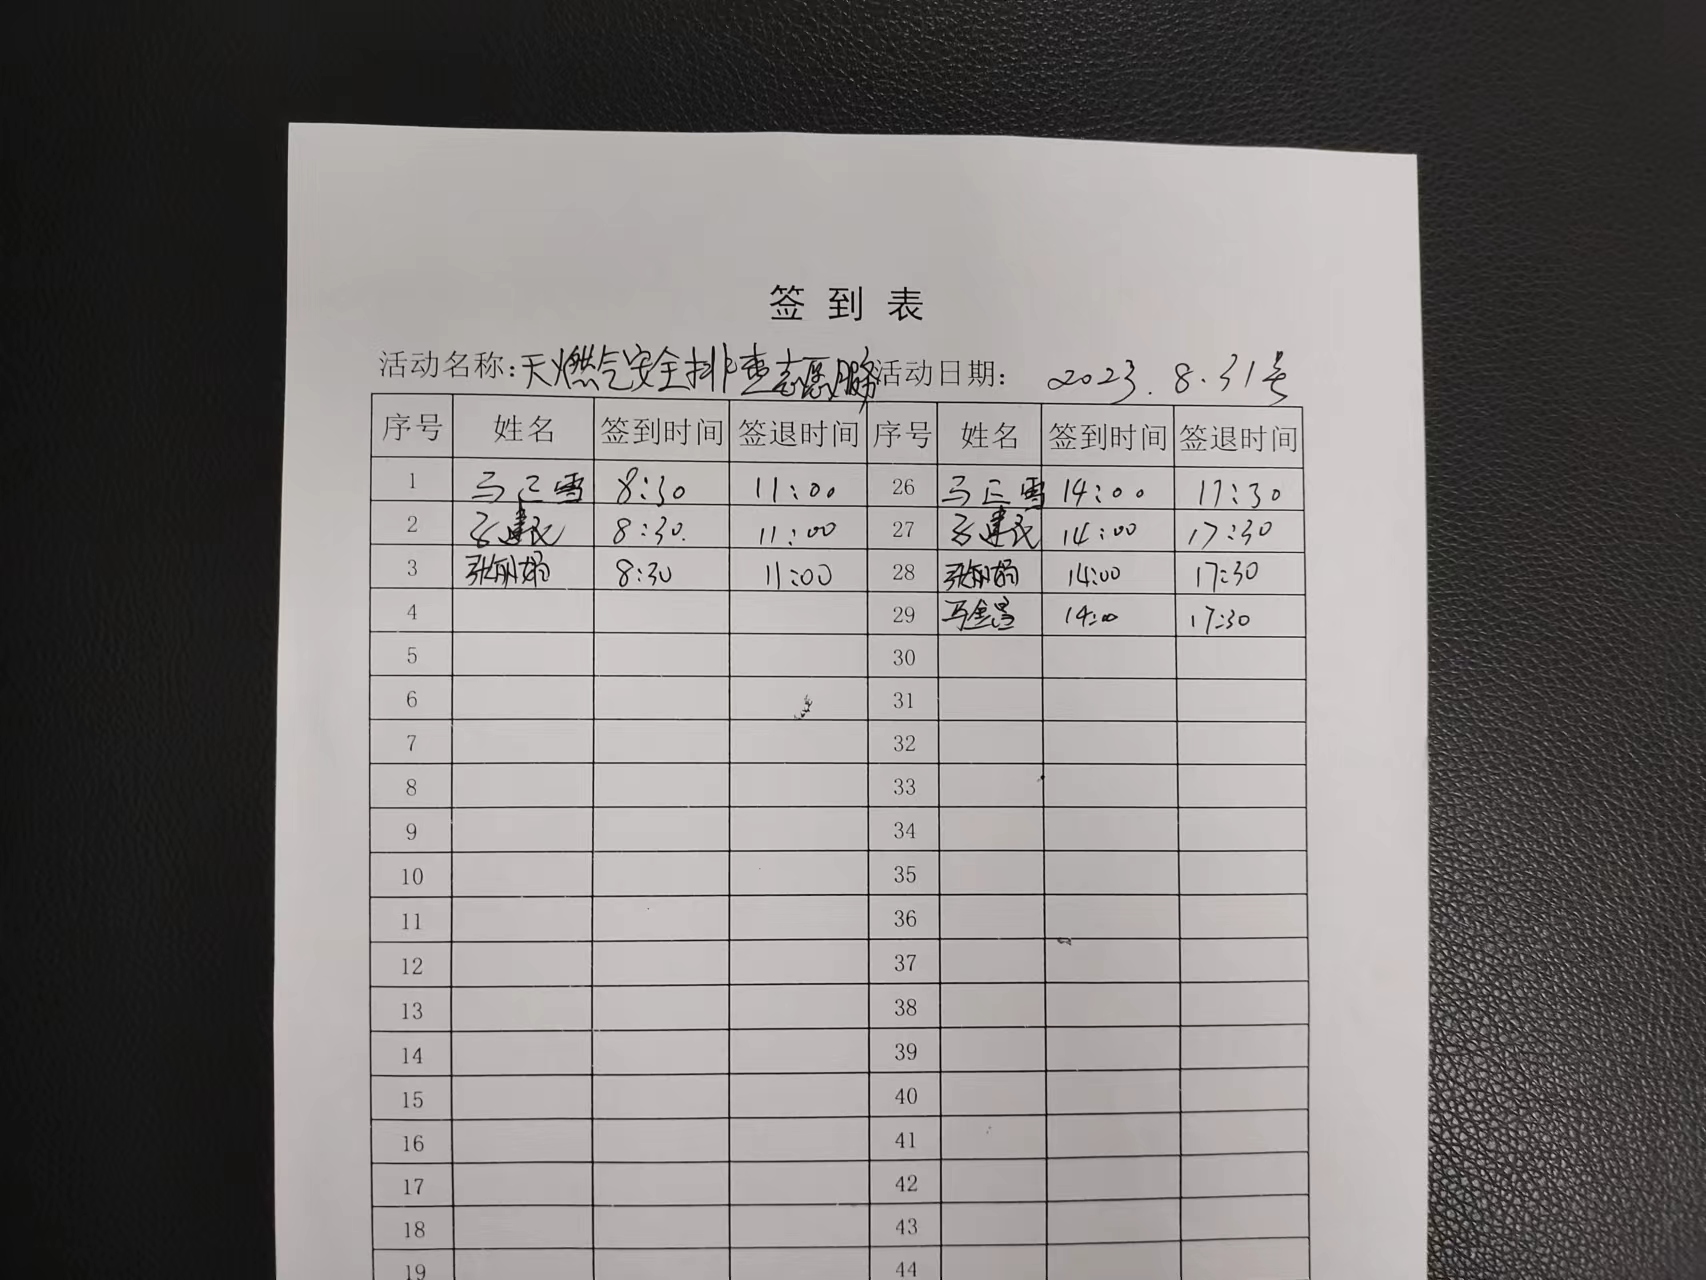 签到表
活动名称:天燃气安全排查志愿服务 活动日期: 2023.8.31号
序号 姓名 签到时间 签退时间 序号 姓名 签到时间 签退时间
1 马正雪 8:30 11:00 26 马正雪 14:00 17:30
2 建民 8:30. 11:00 27 建民 14:00 17:30
3 张丽娟 8:30 11:00 28 张丽娟 14:00 17:30
4 29 马 14:00 17:30
5 30
6 31
7 32
8 33
9 34
10 35
11 36
12 37
13 38
14 39
15 40
16 41
17 42
18 43
19 44